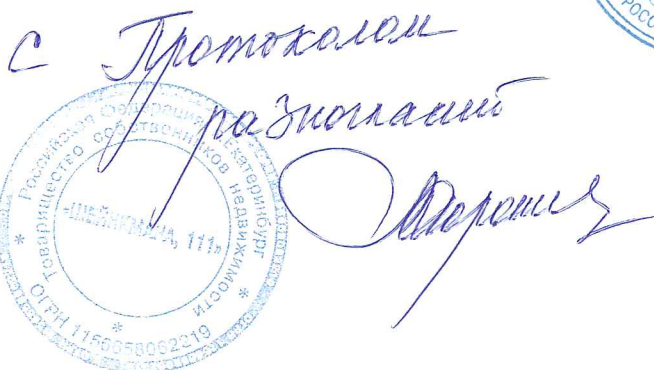 с Протоколом
разногласий
Российская Федерация г. Екатеринбург
Товарищество собственников недвижимости
«ШЕЙНКМАНА, 111»
ОГРН 1156658062219
РОСС